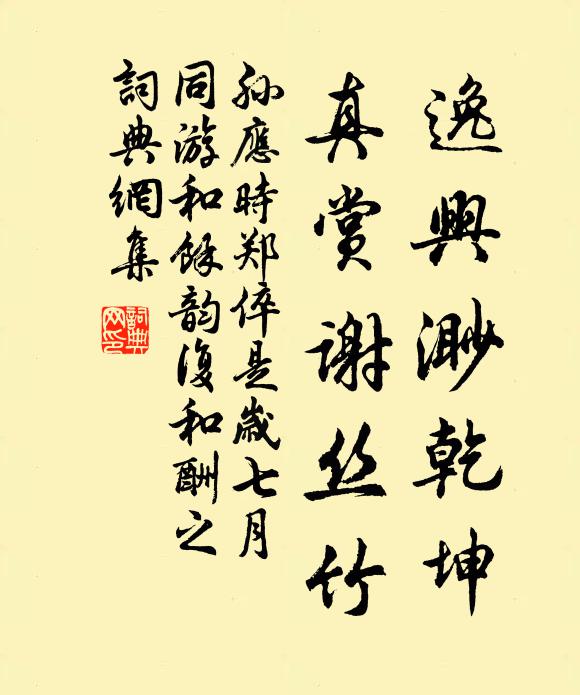 逸興渺乾坤
真赏谢丝竹
孙應時郑倅是歲七月
同游和馀韵復和酬之
詞典網集
詞典网印